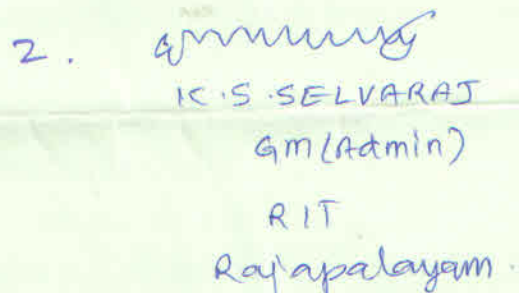 2.
K.S.SELVARAJ
GM(Admin)
RIT
Rajapalayam.